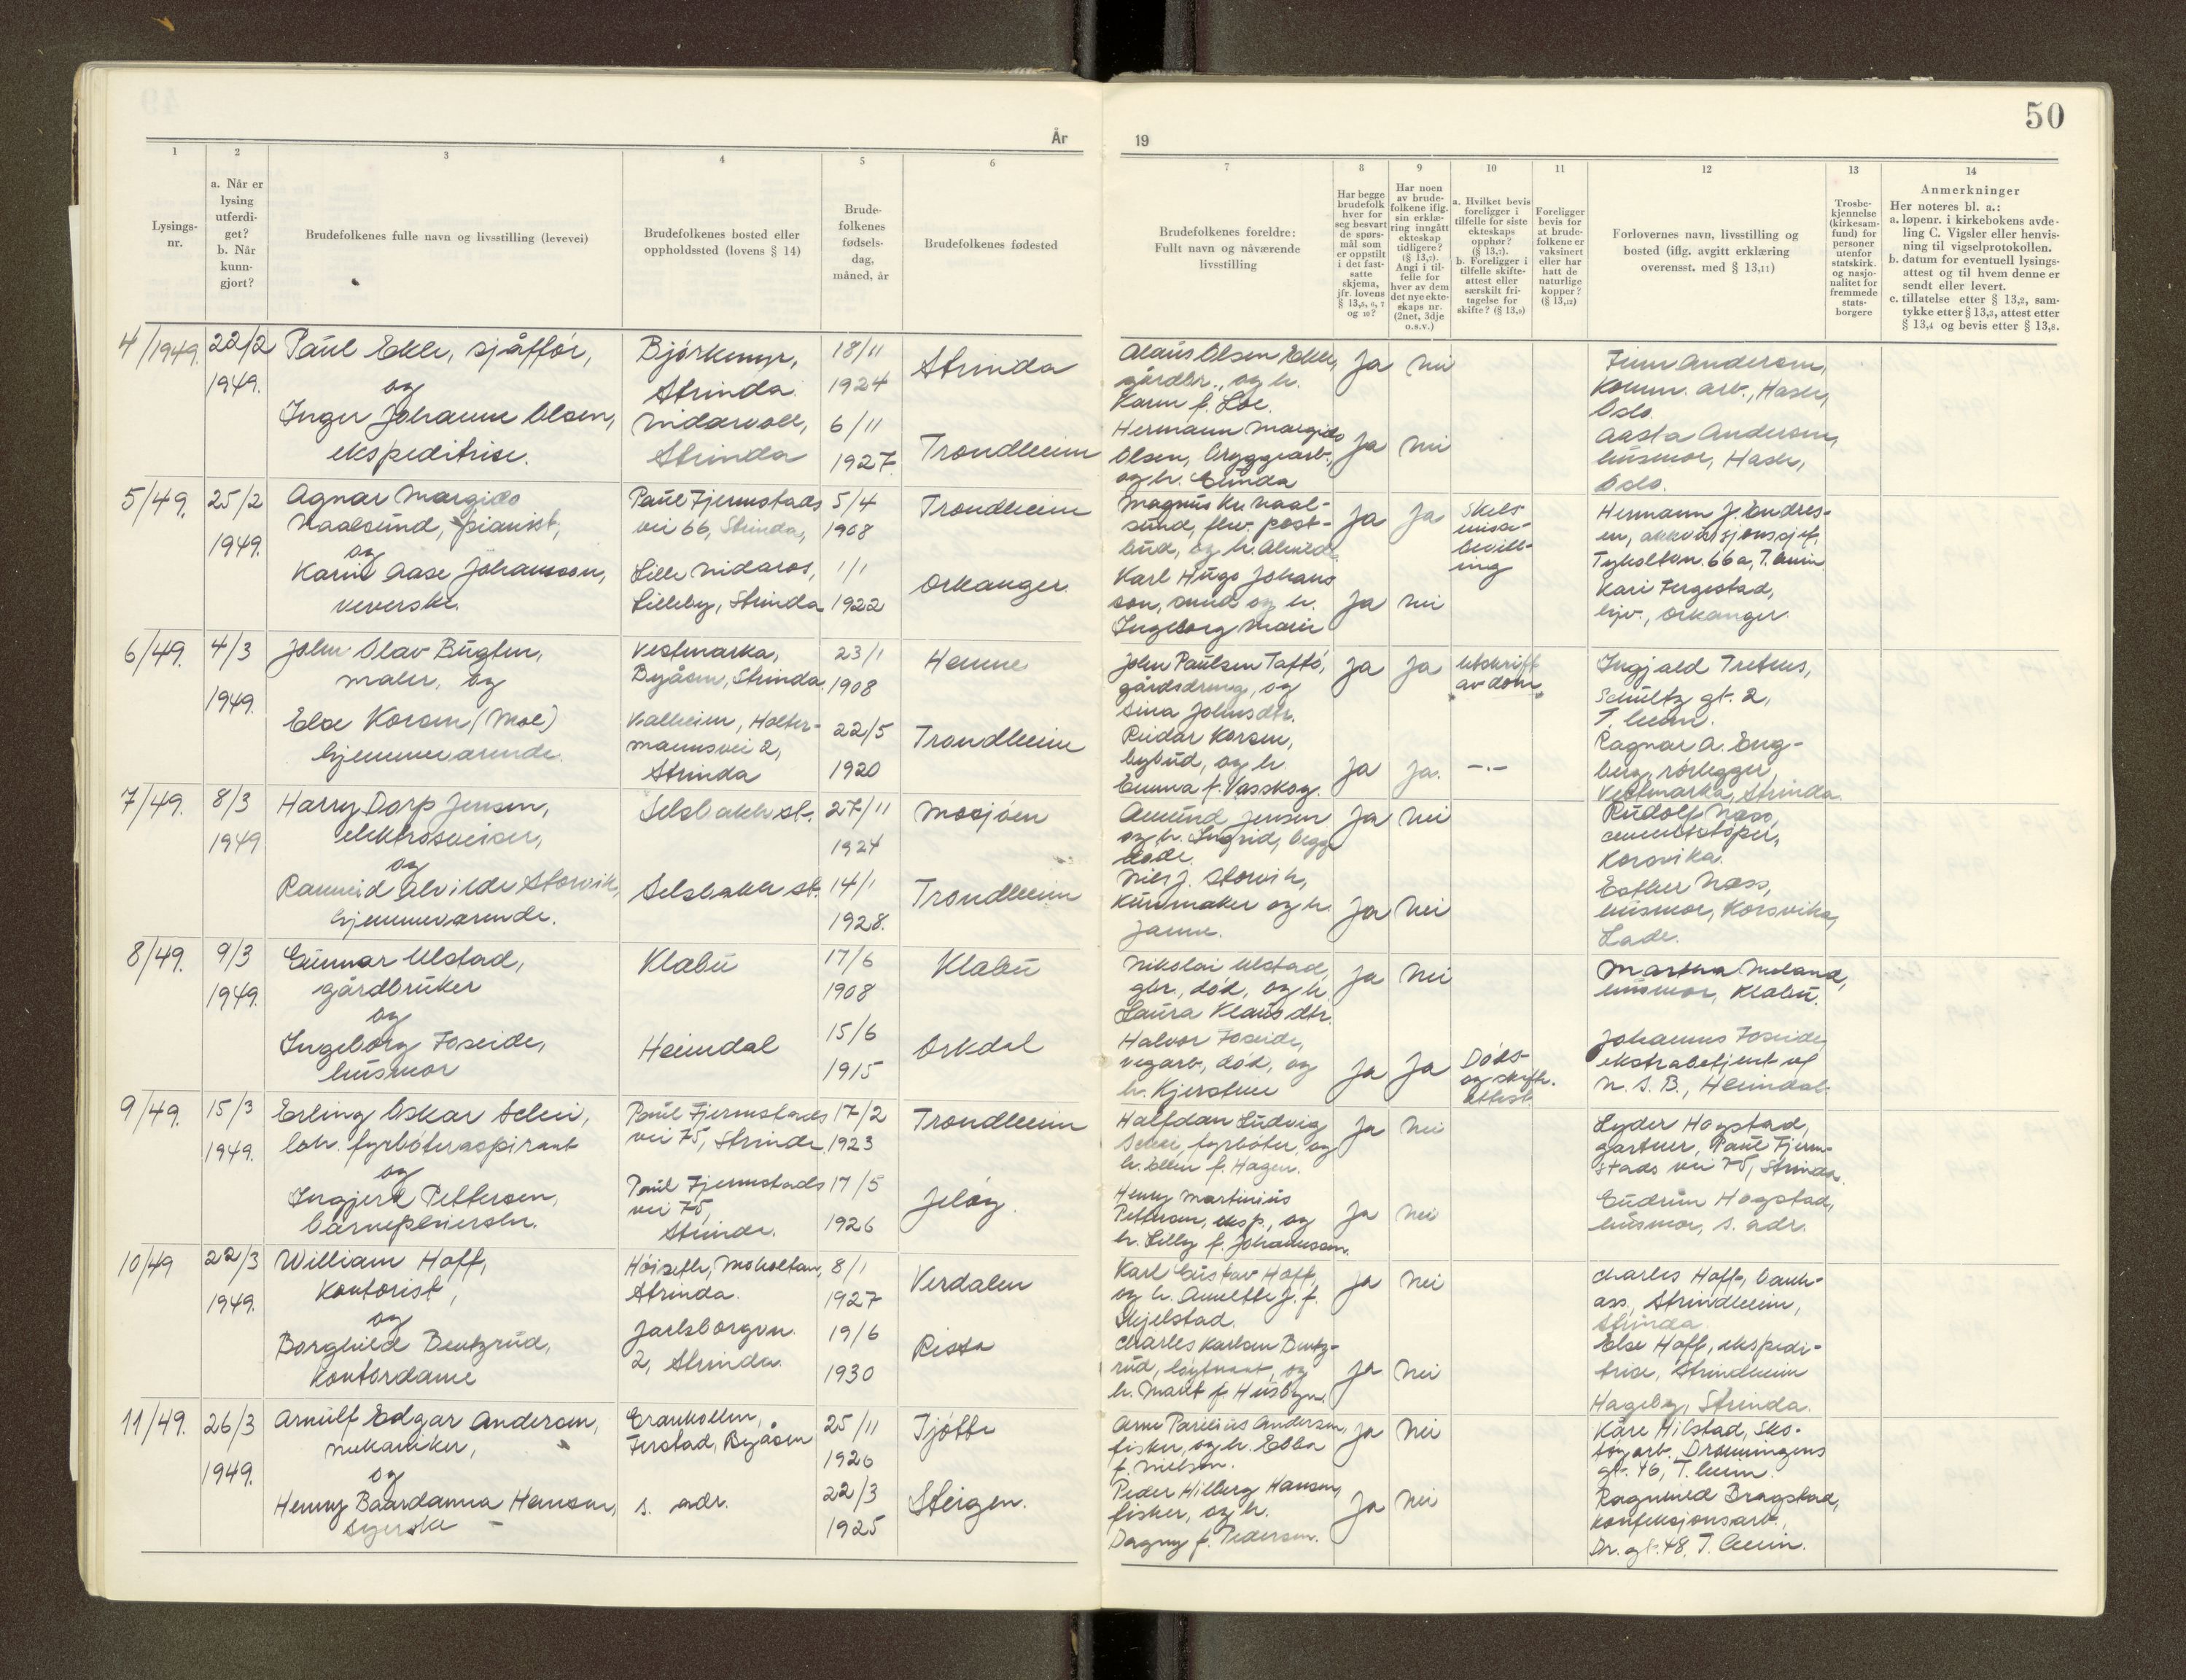 50
År
19
1
2
3
4
5
6
7
8
9
10
11
12
13
14
Lysings-
nr.
a. Når er
lysing
utferdi-
get?
b. Når
kunn-
gjort?
Brudefolkenes fulle navn og livsstilling (levevei)
Brudefolkenes bosted eller
oppholdssted (lovens § 14)
Brude-
folkenes
fødsels-
dag,
måned, år
Brudefolkenes fødested
Brudefolkenes foreldre:
Fullt navn og nåværende
livsstilling
Har begge
brudefolk
hver for
seg besvart
de spørs-
mål som
er oppstilt
i det fast-
satte
skjema,
jfr. lovens
§ 13,5, 6, 7
og 10?
Har noen
av brude-
folkene iflg.
sin erklæ-
ring inngått
ekteskap
tidligere?
(§ 13,7).
Angi i til-
felle for
hver av dem
det nye ekte-
skaps nr.
(2net, 3dje
o.s.v.)
a. Hvilket bevis
foreligger i
tilfelle for siste
ekteskaps
opphør?
(§ 13,7).
b. Foreligger i
tilfelle skifte-
attest eller
særskilt fri-
tagelse for
skifte? (§ 13,9)
Foreligger
bevis for
at brude-
folkene er
vaksinert
eller har
hatt de
naturlige
kopper?
(§ 13,12)
Forlovernes navn, livsstilling og
bosted (iflg. avgitt erklæring
overensst. med § 13,11)
Trosbe-
kjennelse
(kirkesam-
fund) for
personer
utenfor
statskirk.
og nasjo-
nalitet for
fremmede
stats-
borgere
Anmerkninger
Her noteres bl. a.:
a. løpenr. i kirkebokens avde-
ling C. Vigsler eller henvis-
ning til vigselprotokollen.
b. datum for eventuell lysings-
attest og til hvem denne er
sendt eller levert.
c. tillatelse etter § 13,2, sam-
tykke etter § 13,3, attest etter
§ 13,4 og bevis etter § 13,8.
4/1949.
22/2
1949.
Paul Ekle, sjåffør,
og
Inger Johanne Olsen,
ekspeditrise.
Bjørkmyr,
Strinda.
Nidarvoll,
Strinda
18/11
1924
6/11
1927.
Strinda
Trondheim
Olaus Olsen Ekle,
gårdbr., og h.
Karen f. Loe.
Hermann Margido
Olsen, bryggearb.,
og h. Gunda
Ja nei
Ja nei
Finn Andersen,
komm. arb., Hasle,
Oslo.
Aasta Andersen,
husmor, Hasle,
Oslo.
5/49.
25/2
1949.
Agnar Margido
Naalsund, pianist,
og
Karin Aase Johansson,
veverske.
Paul Fjermstads
vei 66, Strinda,
Lille Nidaros,
Lilleby, Strinda
5/4
1908
1/1
1922
Trondheim
Orkanger.
Magnus Kr. Naal-
sund, fhv. post-
bud, og h. Alvilde
Karl Hugo Johans
son, smed og h.
Ingeborg Marie
Ja Ja
Ja nei
Skils-
misse-
bevill-
ing
Hermann J. Endres-
en, akkvisisjonssjef,
Tyholtvn. 66a, T.heim
Kari Fergestad,
hjv., Orkanger.
6/49.
4/3
1949.
John Olav Bugten,
maler, og
Else Korsen (Moe)
hjemmeværende.
Vestmarka,
Byåsen, Strinda.
Valheim, Holter-
mannsvei 2,
Strinda
23/1
1908
22/5
1920
Hemne
Trondheim
John Paulsen Taftø,
gårdsdreng, og
Sina Johnsdtr.
Reidar Korsen,
bybud, og h.
Emma f. Vasskog.
Ja Ja
Ja Ja.
Utskrift
av dom
–·–
Ingjald Treteus,
Schultz gt. 2,
T.heim.
Ragnar A. Eng-
berg, rørlegger,
Vestmarka, Strinda.
7/49.
8/3
1949
Harry Dorp Jensen,
elektrosveiser,
og
Ranveid Alvilde Storvik,
hjemmeværende.
Selsbakk st.
Selsbakk st.
27/11
1924
14/1
1928.
Mosjøen
Trondheim
Amund Jensen
og h. Ingrid, begge
døde.
Nils J. Storvik,
kurvmaker og h.
Janne.
Ja nei
Ja nei
Rudolf Næss,
sementstøper,
Korsvika.
Esther Næss,
husmor, Korsvika,
Lade.
8/49.
9/3
1949.
Gunnar Ulstad,
gårdbruker
og
Ingeborg Foseide,
husmor
Klæbu
Heimdal
17/6
1908
15/6
1915
Klæbu
Orkdal
Nikolai Ulstad,
gbr., død, og h.
Laura Klausdtr.
Halvor Foseide,
vegarb., død, og
h. Kjerstine
Ja nei
Ja Ja
Døds-
og skifte.
attest.
Martha Moland,
husmor, Klæbu.
Johannes Foseide,
ekstrabetjent v/
N. S. B., Heimdal.
9/49.
15/3
1949.
Erling Oskar Schei,
lok. fyrbøteraspirant
og
Ingjerd Pettersen,
barnepleierske.
Paul Fjermstads
vei 75, Strinda
Paul Fjermstads
vei 75,
Strinda.
17/2
1923
17/5
1926
Trondheim
Jeløy.
Halfdan Ludvig
Schei, fyrbøter, og
h. Ellen f. Hagen.
Henry Martinius
Pettersen, eksp., og
h. Lilly f. Johannessen.
Ja nei
Ja nei
Lyder Hogstad,
gartner, Paul Fjerm-
stads vei 75, Strinda.
Gudrun Hogstad,
husmor, s. adr.
10/49
22/3
1949.
William Hoff,
kontorist,
og
Borghild Bentzrud,
kontordame
Høiseth, Moholtan,
Strinda.
Jarlsborgvn.
2, Strinda.
8/1
1927
19/6
1930
Verdalen
Rissa
Karl Gustav Hoff,
og h. Anette J. f.
Skjelstad.
Charles Karlsen Bentz-
rud, løytnant, og
h. Marit f. Husbyn.
Ja nei
Ja nei
Charles Hoff, bank-
ass., Strindheim,
Strinda.
Else Hoff, ekspedi-
trise, Strindheim
Hageby, Strinda.
11/49.
26/3
1949.
Arnulf Edgar Andersen,
mekaniker,
og
Henny Baardanna Hansen,
syerske
Granhollen,
Ferstad, Byåsen
s. adr.
25/11
1926
22/3
1925
Tjøtta
Steigen.
Arne Parelius Andersen,
fisker, og h. Ebba
f. Nielsen.
Peder Hilberg Hansen,
fisker, og h.
Dagny f. Pedersen.
Ja nei
Ja nei
Kåre Hilstad, Sko-
tøyarb. Dronningens
gt. 46, T.heim.
Ragnhild Bragstad,
konfeksjonsarb.,
Dr. gt. 48, T.heim.